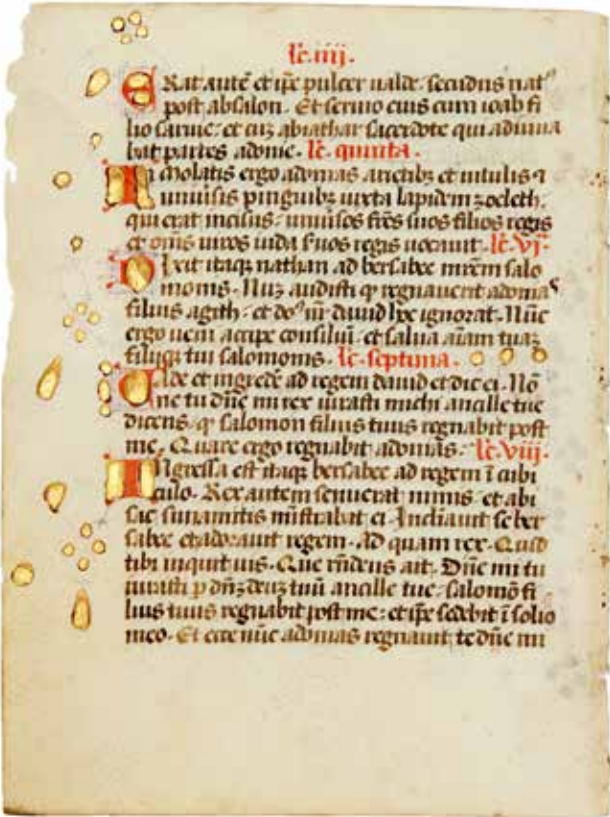 lc. iiij.
ERat autē et ip̄e pulcer ualde. secūdus nat⁹
post absalon. Et sermo eius cum ioab fi
lio saruie. et cuȝ abiathar sacerdote qui adiuua
bat partes adonie. lc. quinta.
Inmolatis ergo adonias arietibȝ et uitulis ⁊
uniuersis pinguibȝ iuxta lapidem zoeleth.
qui erat incisus. uniuersos fr̄es suos filios regis
et om̄s uiros iuda suos regis uocauit. lc. vj.
Dixit itaqȝ nathan ad bersabee mr̄em salo
monis. Nuȝ audisti qȝ regnauerit adonias
filius agith. et do⁹ nr̄ dauid hoc ignorat. Nūc
ergo ueni accipe consiliū. et salua aīam tuaȝ
filiiqȝ tui salomonis. lc. septima.
Uade et ingrede ad regem dauid et dic ei. Nō
ne tu dn̄e mi rex iurasti michi ancille tue
dicens. qȝ salomon filius tuus regnabit post
me. Quare ergo regnabit adonias. lc. viij.
INgressa est itaqȝ bersabee ad regem ī cubi
culo. Rex autem senuerat nimis. et abi
sac sunamitis mīstrabat ei. Inclinauit se ber
sabee et adorauit regem. Ad quam rex. Quid
tibi inquit uis. Que rn̄dens ait. Dn̄e mi tu
iurasti p dn̄ȝ deuȝ tuū ancille tue. salomō fi
lius tuus regnabit post me. et ip̄e sedebit ī solio
meo. Et ecce nūc adonias regnauit te dn̄e mi